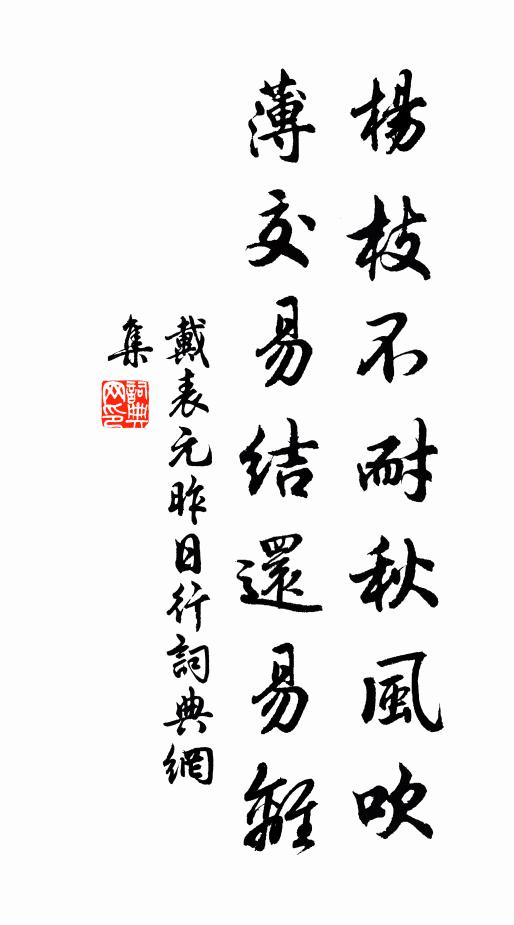 楊枝不耐秋風吹
薄交易結還易離
戴表元昨日行詞典網
集
詞典
网印